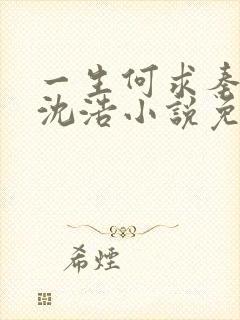 一生何求
沈浩小說免
希煙